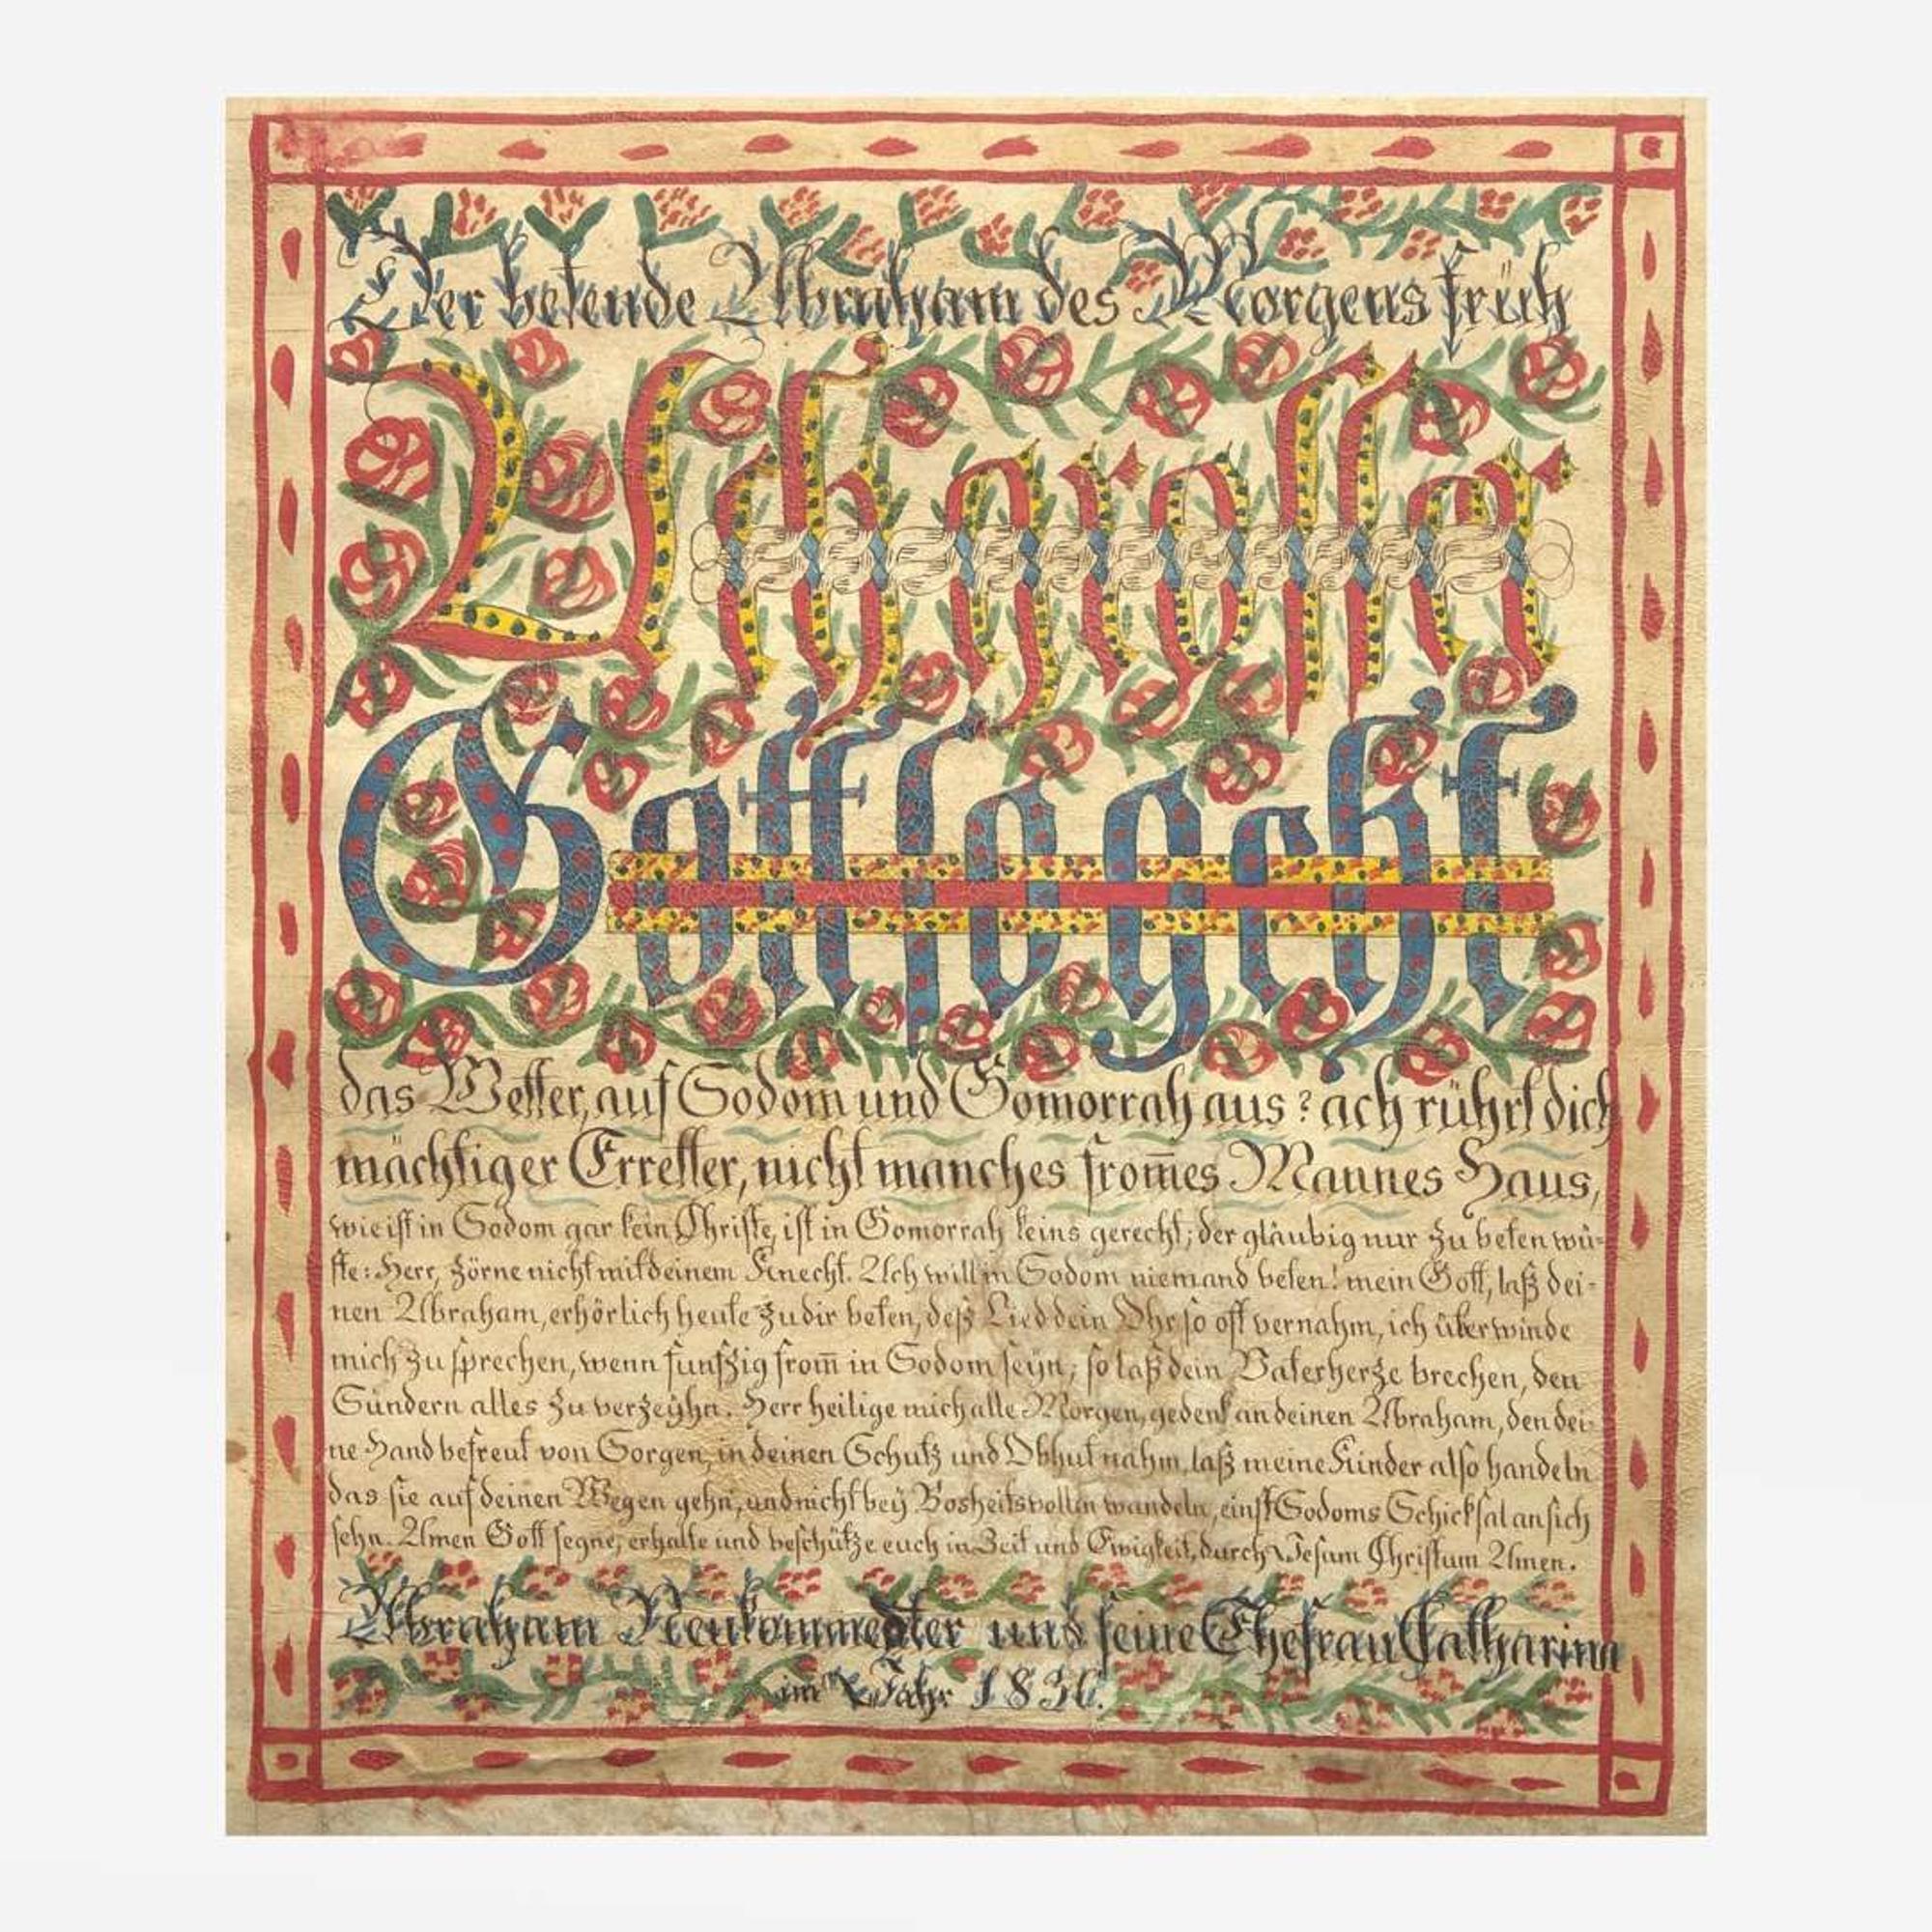 Der betende Abraham des Morgens früh
Ach grosser
Gott so geht
das Wetter, auf Sodom und Gomorrah aus? ach rührt dich
mächtiger Erretter, nicht manches from̄es Mannes Haus,
wie ist in Sodom gar kein Christe, ist in Gomorrah keins gerecht; der gläubig nur zu beten wü-
ste: Herr, zörne nicht mit deinem Knecht. Ach will in Sodom niemand beten! mein Gott, laß dei-
nen Abraham, erhörlich heute zu dir beten, deß Lied dein Ohr so oft vernahm, ich überwinde
mich zu sprechen, wenn funfzig from̄ in Sodom seyn; so laß dein Vaterherze brechen, den
Sündern alles zu verzeyhn. Herr heilige mich alle Morgen, gedenk an deinen Abraham, den dei-
ne Hand befreut von Sorgen, in deinen Schutz und Obhut nahm, laß meine Kinder also handeln
das sie auf deinen Wegen gehn, und nicht bey Bosheitsvollen wandeln, einst Sodoms Schicksal an sich
sehn. Amen Gott segne, erhalte und beschütze euch in Zeit und Ewigkeit, durch Jesum Christum Amen.
Abraham und seine Ehefrau Catharina
im Jahr